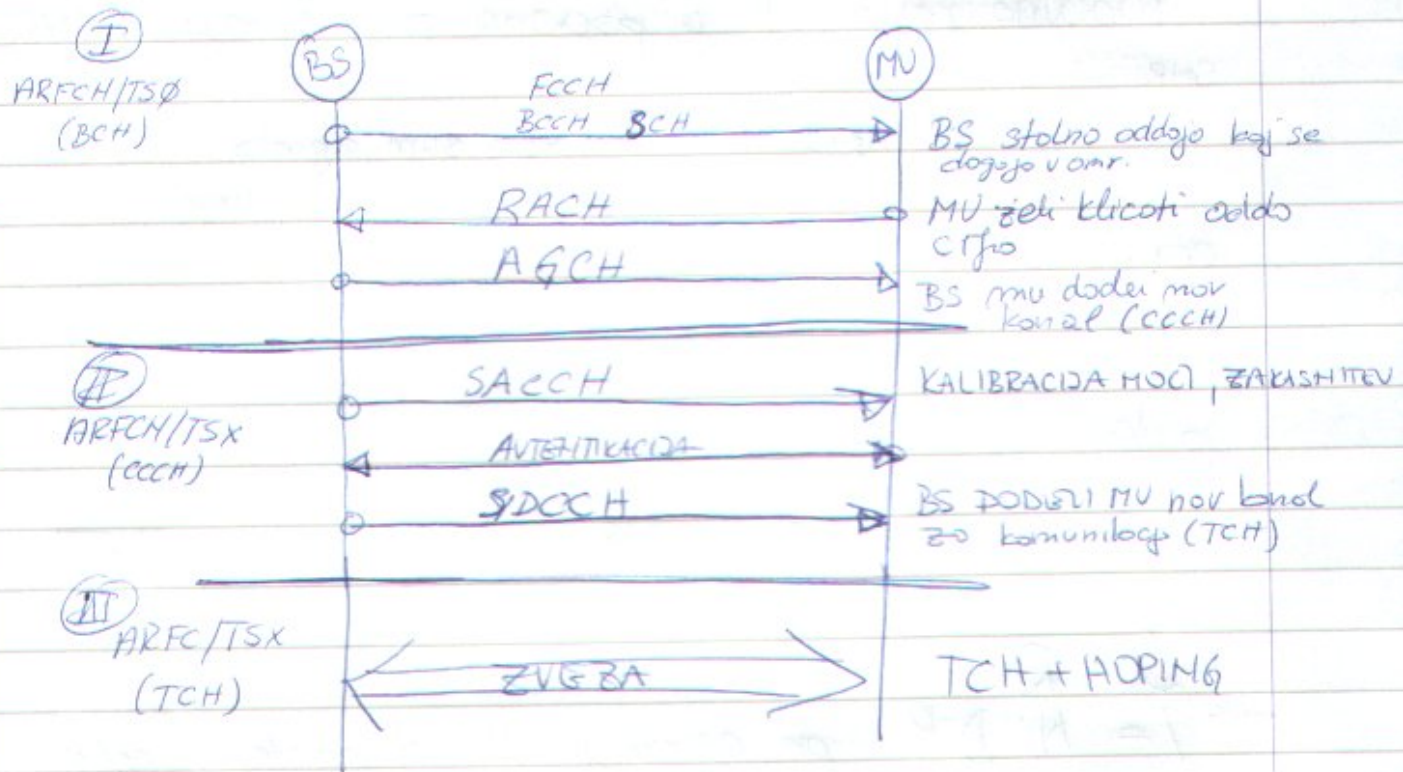 I
ARFCH/TSØ
(BCH)
BS
MU
FCCH
BCCH SCH
BS stalno oddaja kaj se
dogaja v omr.
RACH
MU želi klicati oddo
AGCH
BS mu dodeli nov
kanal (CCCH)
II
ARFCH/TSX
(CCCH)
SACCH
KALIBRACIJA MOČI, ZAKASNITEV
AVTENTIKACIJA
SDCCH
BS DODELI MU nov kanal
za komunikacijo (TCH)
III
ARFC/TSX
(TCH)
ZVEZA
TCH + HOPING